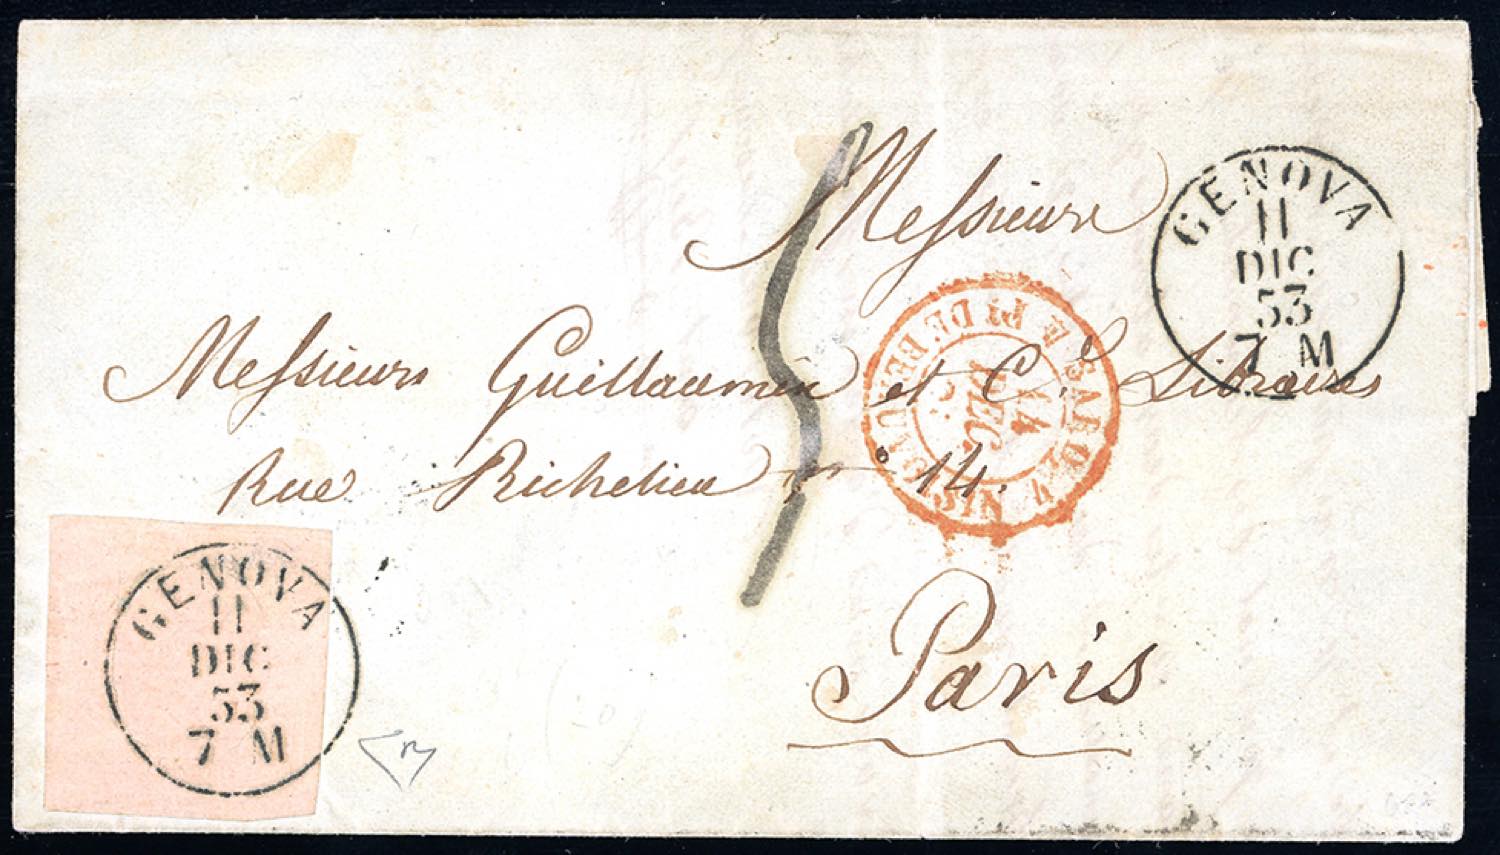 Messieurs
GENOVA
11
DIC
53
7 M
Messieurs Guillaumin et Cie. Libraires
Rue Richelieu n° 14.
SARD.
14
DEC.
Pt DE BEAUV
Paris
GENOVA
11
DIC
53
7 M